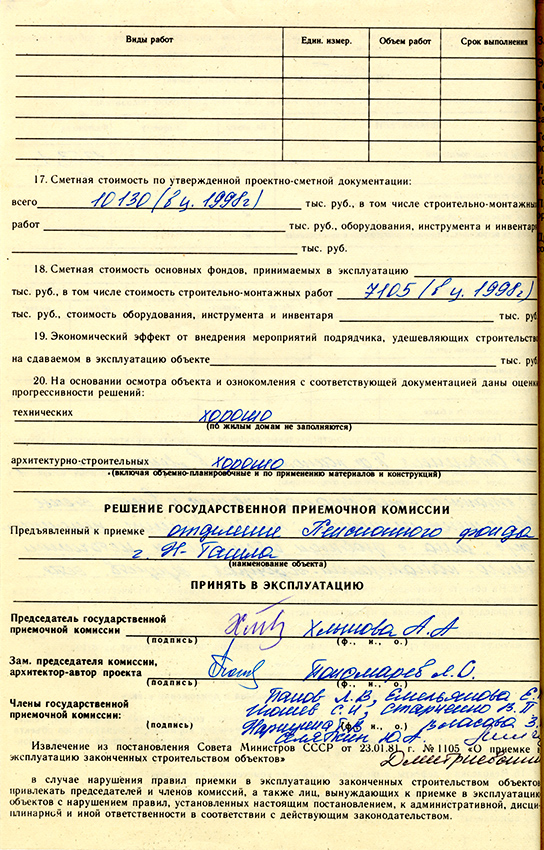 Виды работ Един. измер. Объем работ Срок выполнения
17. Сметная стоимость по утвержденной проектно-сметной документации:
всего 10130 (в ц. 1998г) тыс. руб., в том числе строительно-монтажны
работ тыс. руб., оборудования, инструмента и инвентар
тыс. руб.
18. Сметная стоимость основных фондов, принимаемых в эксплуатацию
тыс. руб., в том числе стоимость строительно-монтажных работ 7105 (в ц. 1998г)
тыс. руб., стоимость оборудования, инструмента и инвентаря тыс. руб
19. Экономический эффект от внедрения мероприятий подрядчика, удешевляющих строительство
на сдаваемом в эксплуатацию объекте тыс. руб.
20. На основании осмотра объекта и ознокомления с соответствующей документацией даны оценк
прогрессивности решений:
технических хорошо
(по жилым домам не заполняются)
архитектурно-строительных хорошо
(включая объемно-планировочные и по применению материалов и конструкций)
РЕШЕНИЕ ГОСУДАРСТВЕННОЙ ПРИЕМОЧНОЙ КОМИССИИ
Предъявленный к приемке отделение Пенсионного фонда
г. Н-Тагила
(наименование объекта)
ПРИНЯТЬ В ЭКСПЛУАТАЦИЮ
Председатель государственной
приемочной комиссии Хлынова А.А
(подпись) (ф., и., о.)
Зам. председателя комиссии,
архитектор-автор проекта Пономарев Л.О.
(подпись) (ф., и., о.)
Члены государственной Панов Л.В, Емельянова Е.
приемочной комиссии: С.И, Старченко В.П
(подпись) (ф., и., о.) Власова З.
Ю.А
Извлечение из постановления Совета Министров СССР от 23.01.81 г. № 1105 «О приемке в
эксплуатацию законченных строительством объектов»
в случае нарушения правил приемки в эксплуатацию законченных строительством объектов
привлекать председателей и членов комиссий, а также лиц, вынуждающих к приемке в эксплуатацию
объектов с нарушением правил, установленных настоящим постановлением, к административной, дисци-
плинарной и иной ответственности в соответствии с действующим законодательством.